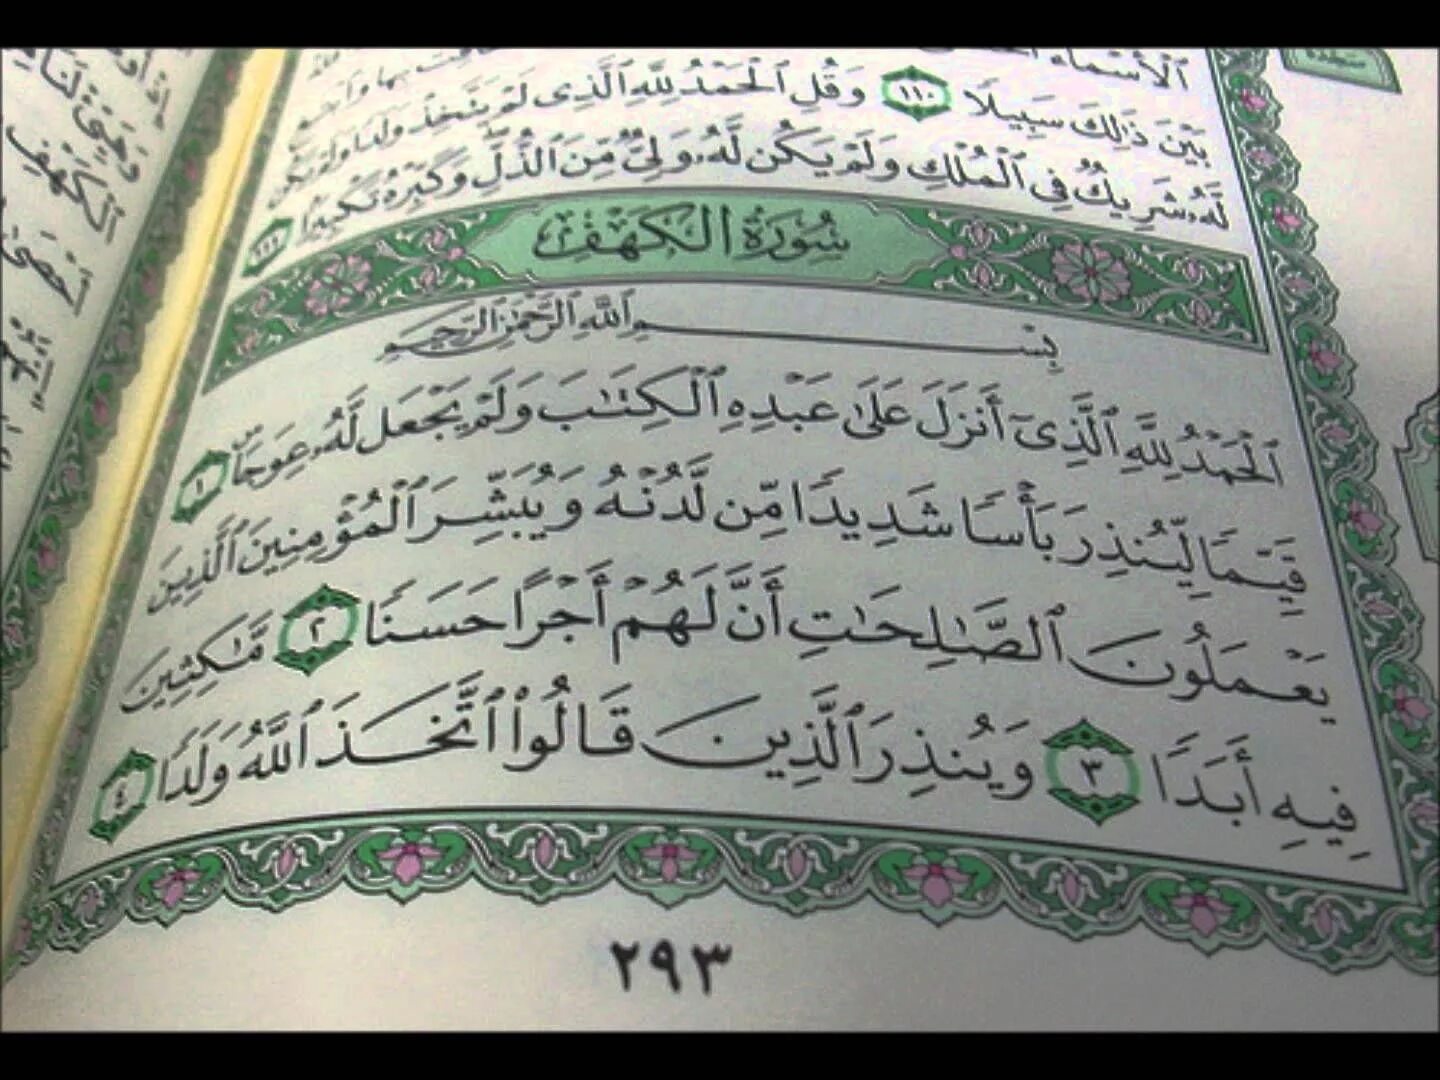 بَيْنَ ذَٰلِكَ سَبِيلًا ١١٠ وَقُلِ ٱلْحَمْدُ لِلَّهِ ٱلَّذِى لَمْ يَتَّخِذْ وَلَدًا وَلَمْ يَكُن
لَّهُۥ شَرِيكٌ فِى ٱلْمُلْكِ وَلَمْ يَكُن لَّهُۥ وَلِىٌّ مِّنَ ٱلذُّلِّ وَكَبِّرْهُ تَكْبِيرًۢا ١١١
سُورَةُ الكَهْفِ
بِسْمِ ٱللَّهِ ٱلرَّحْمَٰنِ ٱلرَّحِيمِ
ٱلْحَمْدُ لِلَّهِ ٱلَّذِىٓ أَنزَلَ عَلَىٰ عَبْدِهِ ٱلْكِتَٰبَ وَلَمْ يَجْعَل لَّهُۥ عِوَجَاۜ ١
قَيِّمًا لِّيُنذِرَ بَأْسًا شَدِيدًا مِّن لَّدُنْهُ وَيُبَشِّرَ ٱلْمُؤْمِنِينَ ٱلَّذِينَ
يَعْمَلُونَ ٱلصَّٰلِحَٰتِ أَنَّ لَهُمْ أَجْرًا حَسَنًا ٢ مَّٰكِثِينَ
فِيهِ أَبَدًا ٣ وَيُنذِرَ ٱلَّذِينَ قَالُوا۟ ٱتَّخَذَ ٱللَّهُ وَلَدًا ٤
٢٩٣